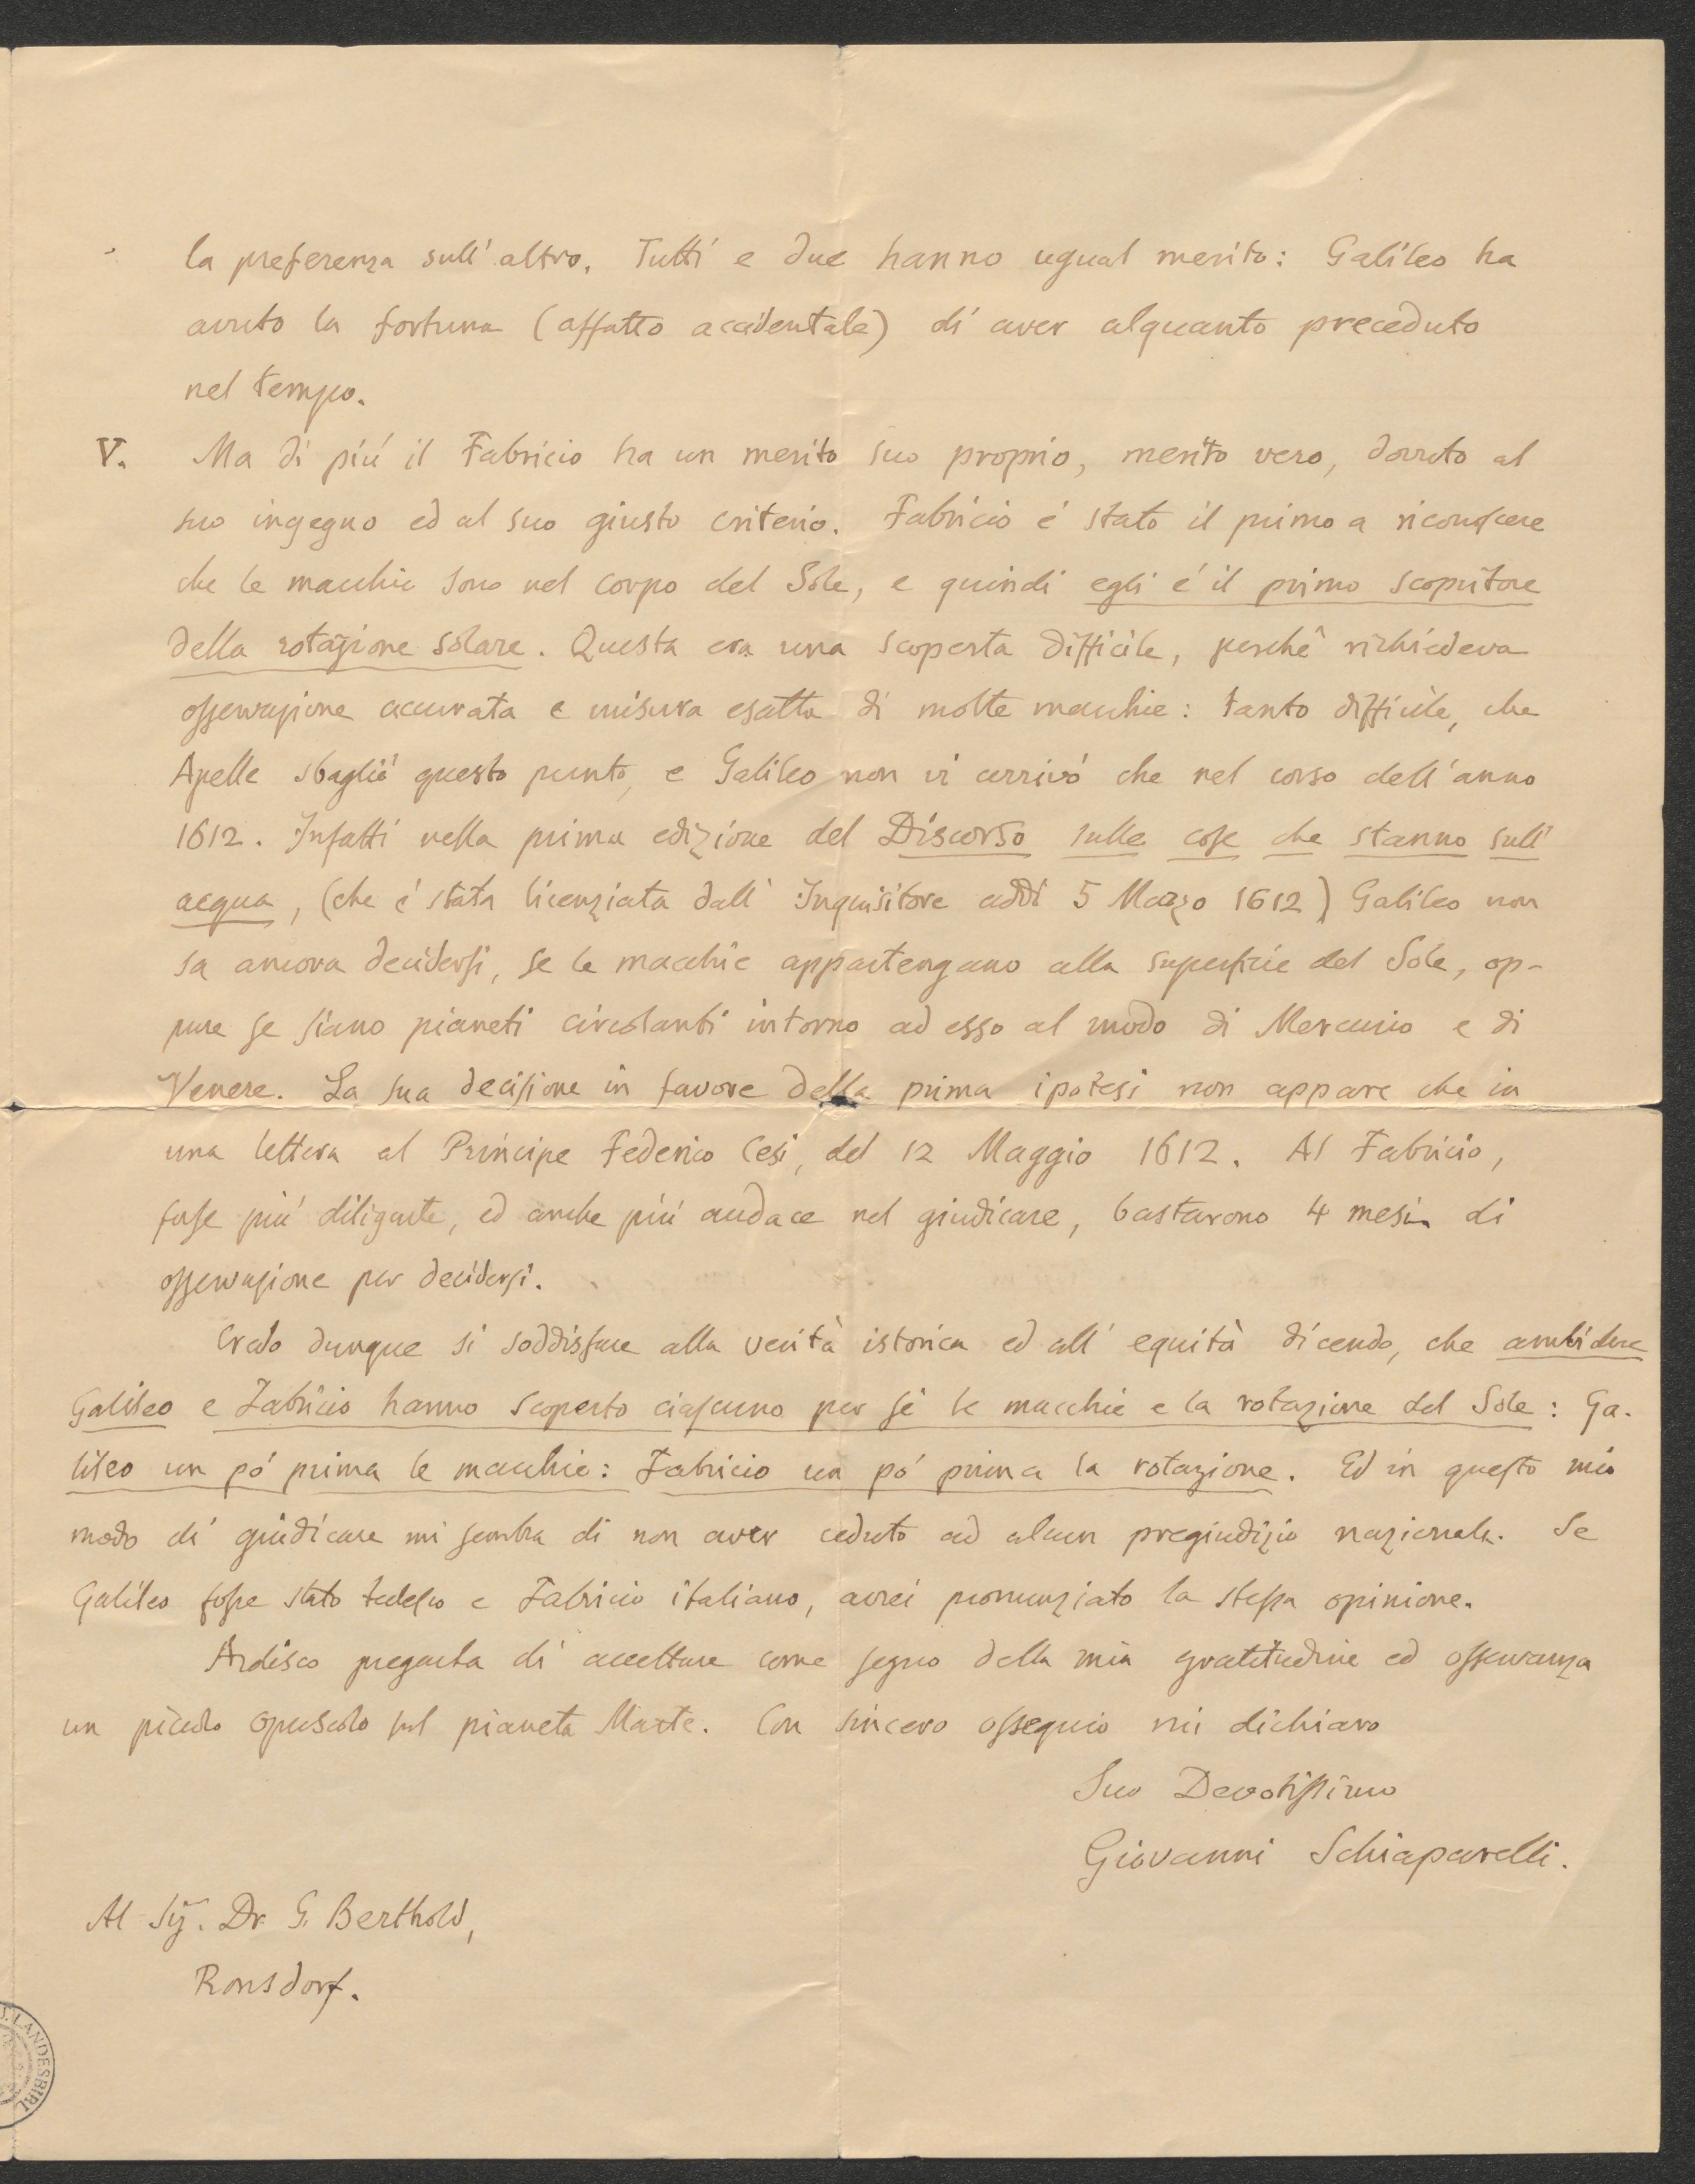 la preferenza sull'altro. Tutti e due hanno ugual merito: Galileo ha
avuto la fortuna (affatto accidentale) di aver alquanto preceduto
nel tempo.
V. Ma di piú il Fabricio ha un merito suo proprio, merito vero, dovuto al
suo ingegno ed al suo giusto criterio. Fabricio é stato il primo a riconoscere
che le macchie sono nel corpo del Sole, e quindi egli é il primo scopritore
della rotazione solare. Questa era una scoperta difficile, perchè richiedeva
osservazione accurata e misura esatta di molte macchie: tanto difficile, che
Apelle sbagliò questo punto, e Galileo non vi arrivò che nel corso dell'anno
1612. Infatti nella prima edizione del Discorso sulle cose che stanno sull'
acqua, (che é stata licenziata dall'Inquisitore addì 5 Marzo 1612) Galileo non
sa ancora decidersi, se le macchie appartengano alla superficie del Sole, op-
pure se siano pianeti circolanti intorno ad esso al modo di Mercurio e di
Venere. La sua decisione in favore della prima ipotesi non appare che in
una lettera al Principe Federico Cesi, del 12 Maggio 1612. Al Fabricio,
forse piú diligente, ed anche piú audace nel giudicare, bastarono 4 mesi di
osservazione per decidersi.
Credo dunque si soddisfare alla verità istorica ed all'equità dicendo, che ambidue
Galileo e Fabricio hanno scoperto ciascuno per sé le macchie e la rotazione del Sole: Ga-
lileo un pó prima le macchie: Fabricio un pó prima la rotazione. Ed in questo mio
modo di giudicare mi sembra di non aver ceduto ad alcun pregiudizio nazionale. Se
Galileo fosse stato tedesco e Fabricio italiano, avrei pronunziato la stessa opinione.
Ardisco pregarla di accettare come segno della mia gratitudine ed osservanza
un piccolo opuscolo sul pianeta Marte. Con sincero ossequio mi dichiaro
Suo Devotissimo
Giovanni Schiaparelli.
Al Sig. Dr. G. Berthold,
Ronsdorf.
LANDESBIBL